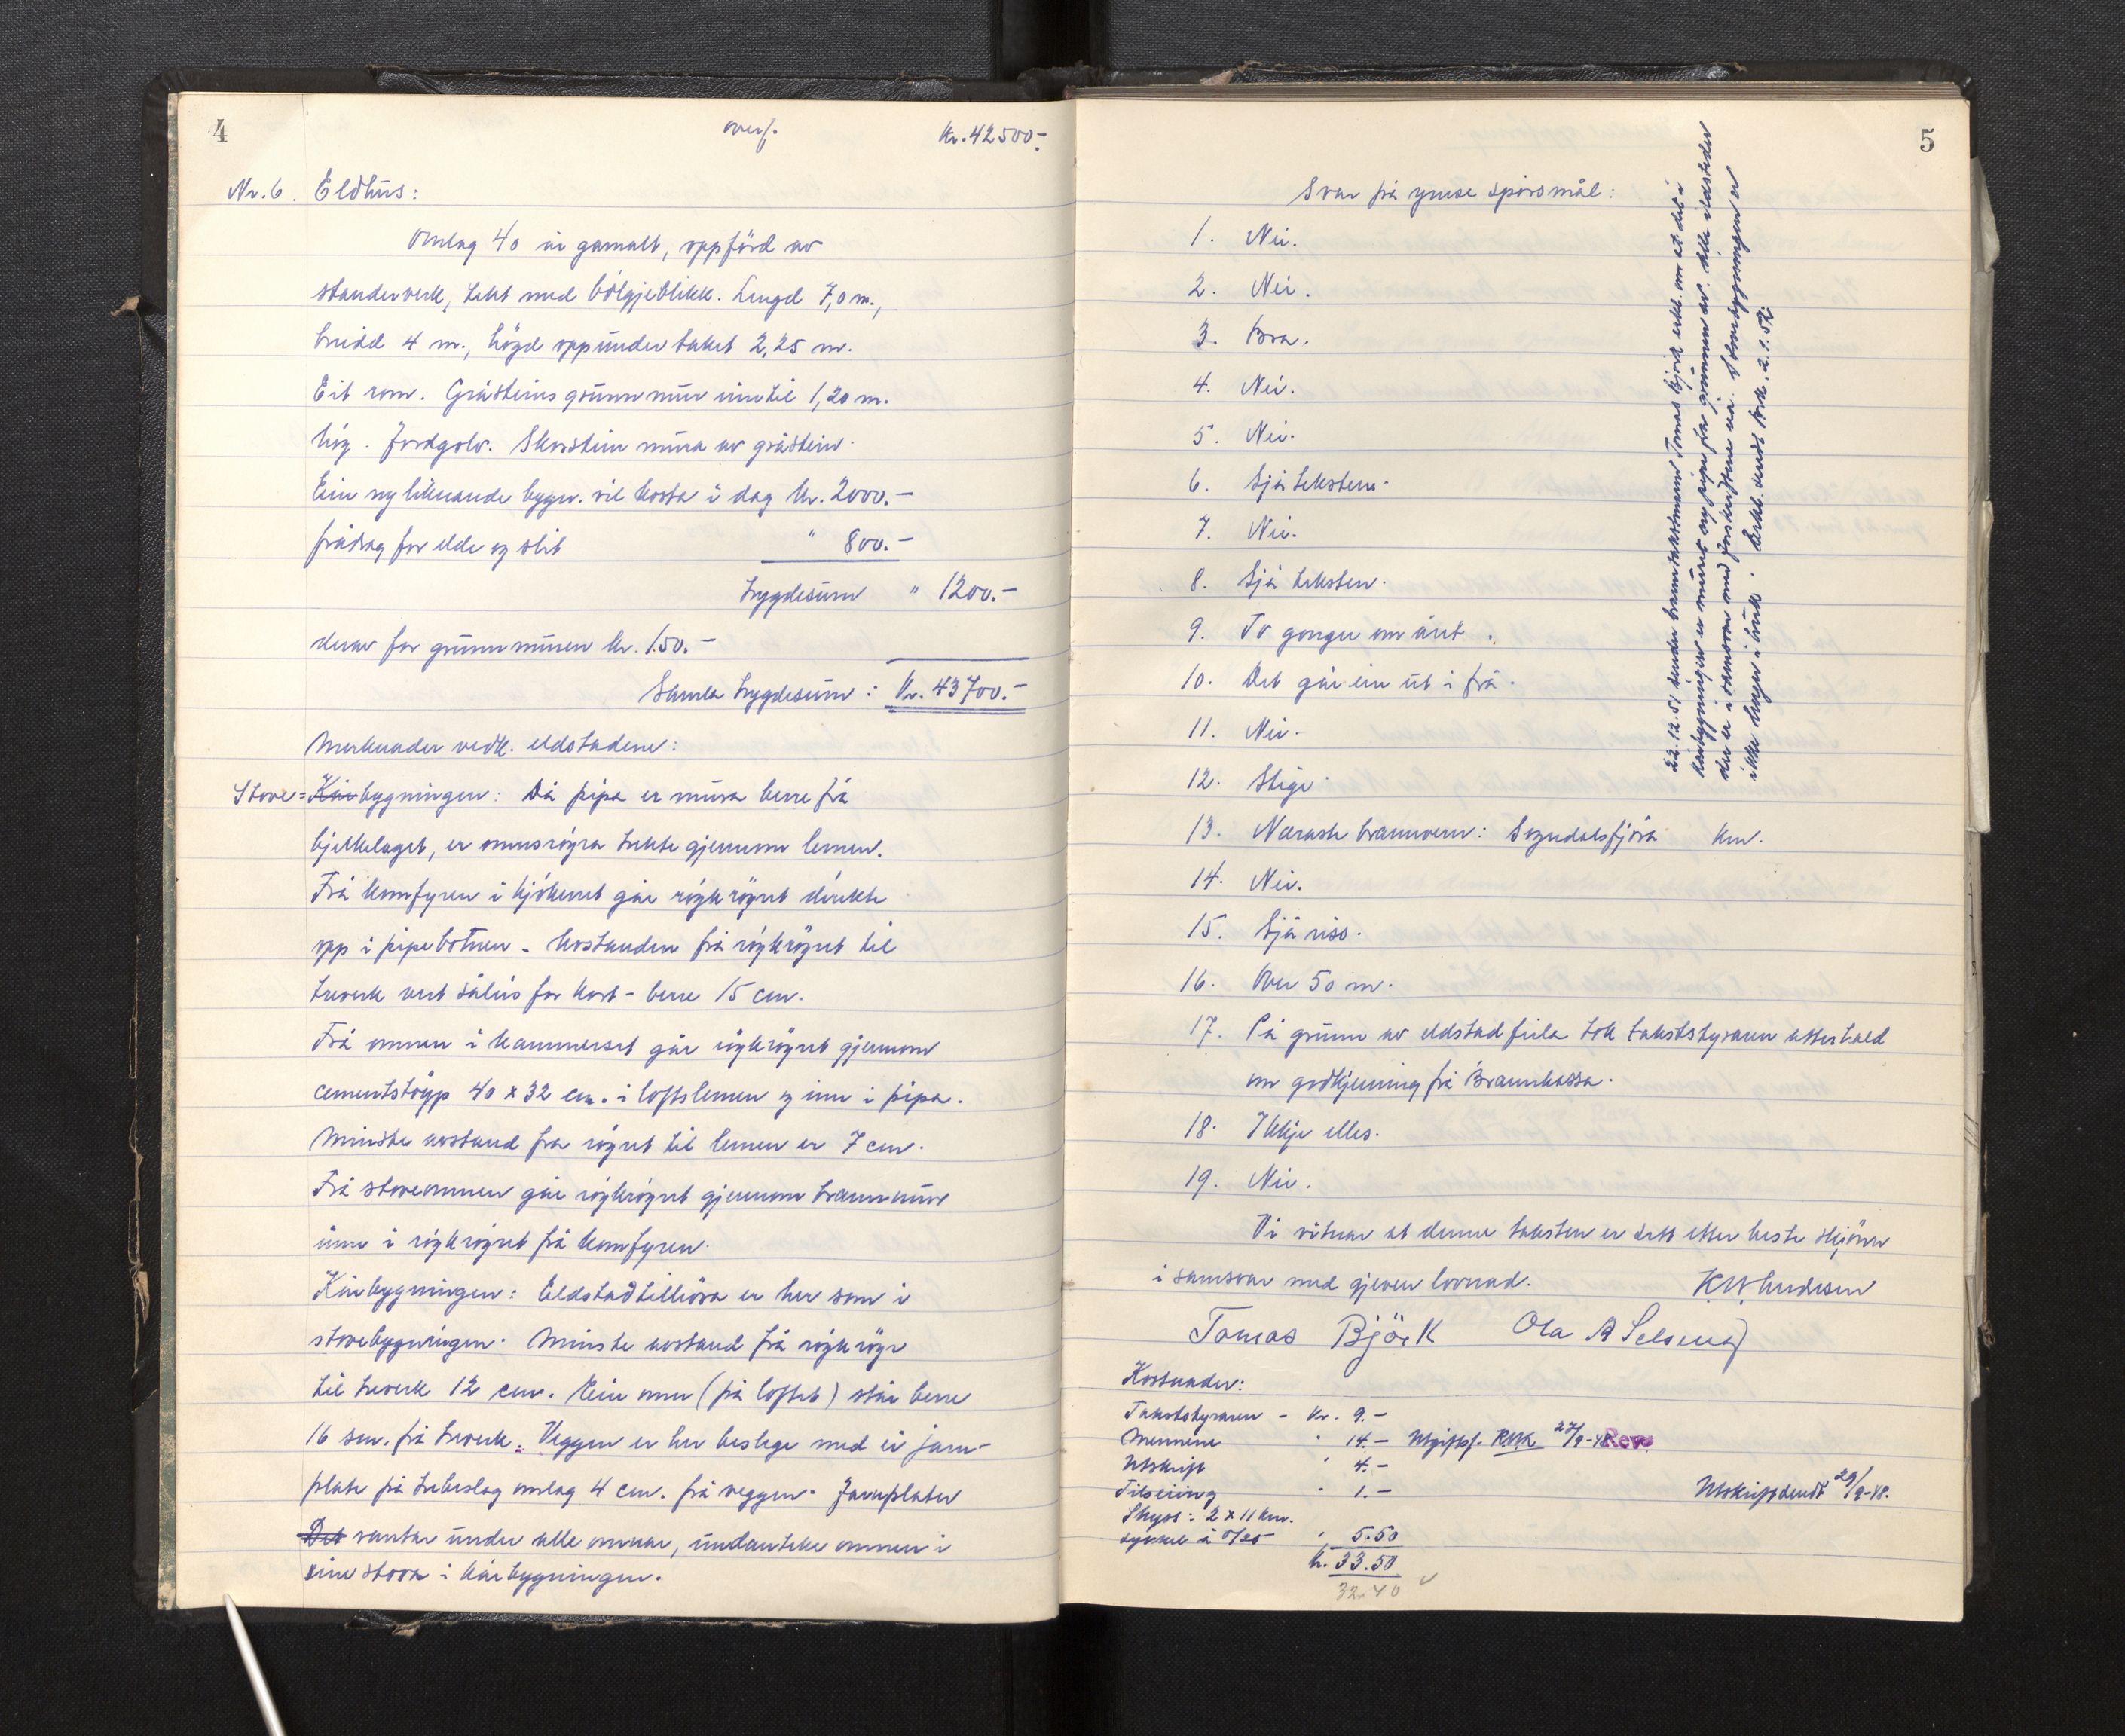 4
overf. Kr. 42500.-
Nr. 6. Eldhus:
Omlag 40 år gamalt, oppförd av
standerverk, tekt med bölgjeblikk. Lengd 7,0 m.,
breidd 4 m., högd oppunder taket 2,25 m.
Eit rom. Gråsteins grunnmur inntil 1,20 m.
hög. Jordgolv. Skorstein mura av gråstein.
Ein ny liknande bygn. vil kosta i dag kr. 2000.-
frådrag for elde og slit " 800.-
trygdesum " 1200.-
derav for grunnmuren kr. 150.-
Samla trygdesum: Kr. 43700.-
Merknader vedk. eldstadene:
Stove= Kårbygningen: Då pipa er mura berre frå
bjelkelaget, er omnsröyra tekte gjennom lemen.
Frå komfyren i kjökenet går röykröyret direkte
opp i pipebotnen - Avstanden frå röykröyret til
treverk vert såleis for kort - berre 15 cm.
Frå omnen i kammerset går röykröyret gjennom
cementstöyp 40 x 32 cm. i loftslemen og inn i pipa.
Minste avstand fra röyret til lemen er 7 cm.
Frå stoveomnen går röykröyret gjennom brannmur
inn i röykröyret frå komfyren.
Kårbygningen: Eldstadtilhöva er her som i
stovebygningen. Minste avstand frå röykröyr
til treverk 12 cm. Ein omn (på loftet) står berre
16 sm. frå treverk. Veggen er her beslege med ei jarn-
plate på trebeslag omlag 4 cm. frå veggen. Jarnplater
Det vantar under alle omnar, undanteke omnen i
eine stova i kårbygningen.
5
Svar på ymse spörsmål:
1. Nei.
2. Nei.
3. Bra.
4. Nei.
5. Nei.
6. Sjå teksten.
7. Nei.
8. Sjå teksten.
9. To gonger om året.
10. Det går ein ut i frå.
11. Nei.
12. Stige.
13. Næraste brannvern: Sogndalsfjöra km.
14. Nei.
15. Sjå riss.
16. Over 50 m.
17. På grunn av eldstadfeila tok takststyraren atterhald
om godkjenning frå Brannkassa.
18. Ikkje elles.
19. Nei.
Vi vitnar at denne taksten er sett etter beste skjönn
i samsvar med gjeven lovnad. K. W. Andersen
Tomas Björk Ola A Selseng
Kostnader:
Takststyraren - Kr. 9.-
Mennene " 14.- Utgiftsf. RWK 27/9-48 Rev.
Utskrift " 4.-
Tilseiing " 1.-
Skyss: 2 x 11 km.
sykkel à 0/25 " 5.50
Kr. 33.50
32.40
Utskrift sendt 29/9-48.
22.12.51 sender branntakstmann Tomas Bjørk erkl. om at det i
kårbygningen er murt ny pipe fra grunnen av. Alle ildsteder
der er i samsvar med forskriftene nå. Stovebygningen er
ikke lenger i bruk. Erkl. sendt 2.1.52.